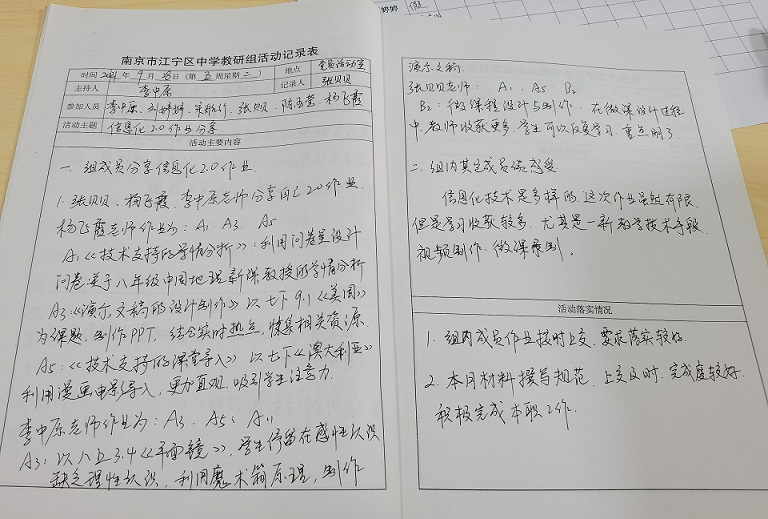 南京市江宁区中学教研组活动记录表
时间 2021 年 9 月 日 (第 五 周星期 二)
地点
主持人 李中原
记录人 张贝贝
参加人员 李中原、 张贝贝、 杨飞霞
活动主题 信息化2.0作业分享
活动主要内容
一. 组成员分享信息化2.0作业.
1. 张贝贝、杨飞霞、李中原老师分享自己2.0作业
杨飞霞老师作业为: A1 A3 A5
A1《技术支持的学情分析》: 利用问卷星设计
问卷关于八年级中国地理新课教授的学情分析
A3:《演示文稿的设计制作》以七下9.1《美国》
为课题, 制作PPT. 结合实时热点, 搜集相关资源.
A5:《技术支持的课堂导入》以七下《澳大利亚》
利用漫画电影导入, 更加直观, 吸引学生注意力.
李中原老师作业为: A3. A5. A11
A3: 以八上3.4《平面镜》, 学生停留在感性认识
缺乏理性认识, 利用魔术箱原理, 制作
演示文稿.
张贝贝老师: A1. A5 B2
B2: 微课程设计与制作. 在微课设计过程
中, 教师收获更多. 学生可以反复学习. 重点明了.
二. 组内其它成员谈感受
信息化技术是多样的, 这次作业虽然有限,
但是学习收获较多. 尤其是一新教学技术手段.
视频制作. 微课录制.
活动落实情况
1. 组内成员作业按时上交. 要求落实较好.
2. 本月材料撰写规范. 上交及时. 完成度较好.
积极完成本职工作.